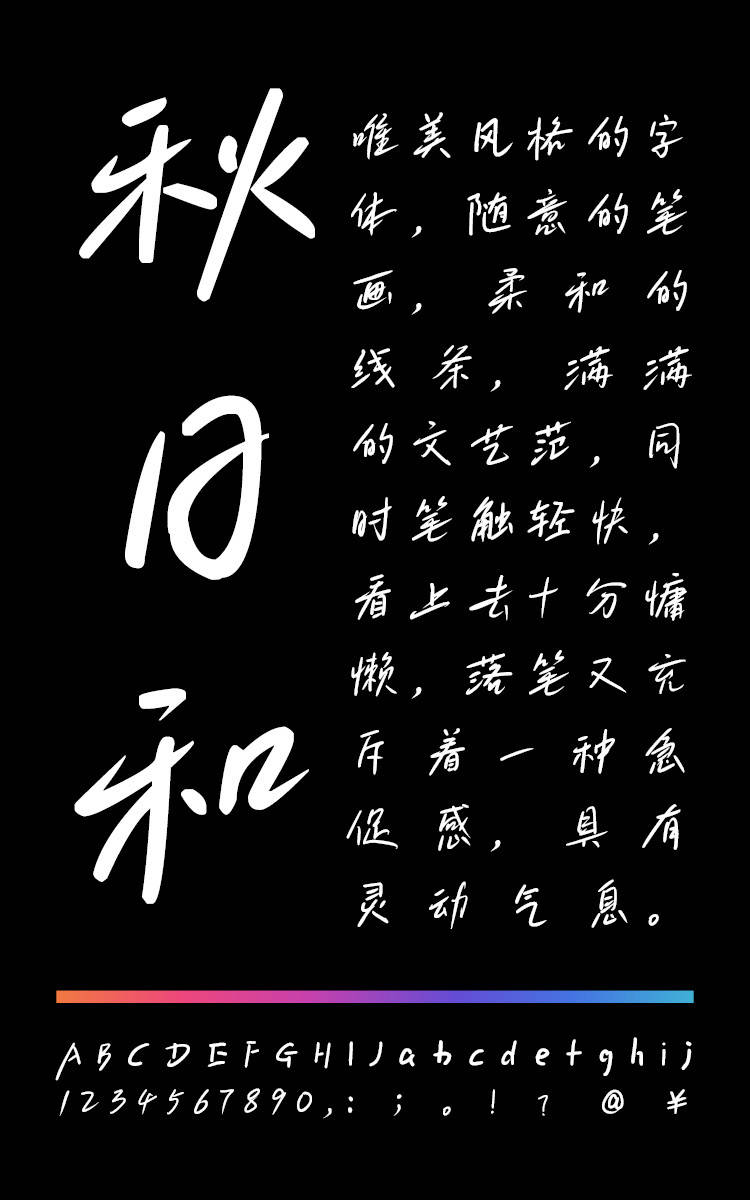 秋日和
唯美风格的字
体，随意的笔
画，柔和的
线条，满满
的文艺范，同
时笔触轻快，
看上去十分慵
懒，落笔又充
斥着一种急
促感，具有
灵动气息。
ABCDEFGHIJabcdefghij
1234567890,:;。!?@¥